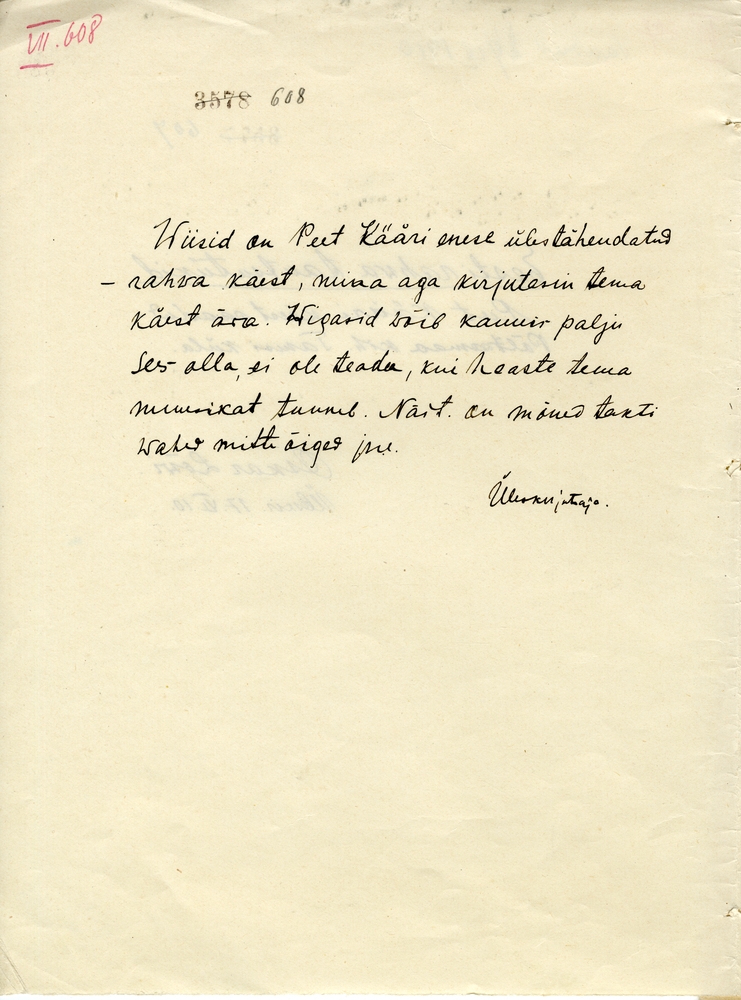 VII. 608
3578 608
Wiisid on Peet Kääri enese ülestähendatud
– rahva käest, mina aga kirjutasin tema
käest ära. Wigasid wõib kaunis palju
ses olla, ei ole teada, kui haaste tema
muusikat tunneb. Näit. on mõned takti
wahed mitte õiged jne.
Üleskirjutaja.